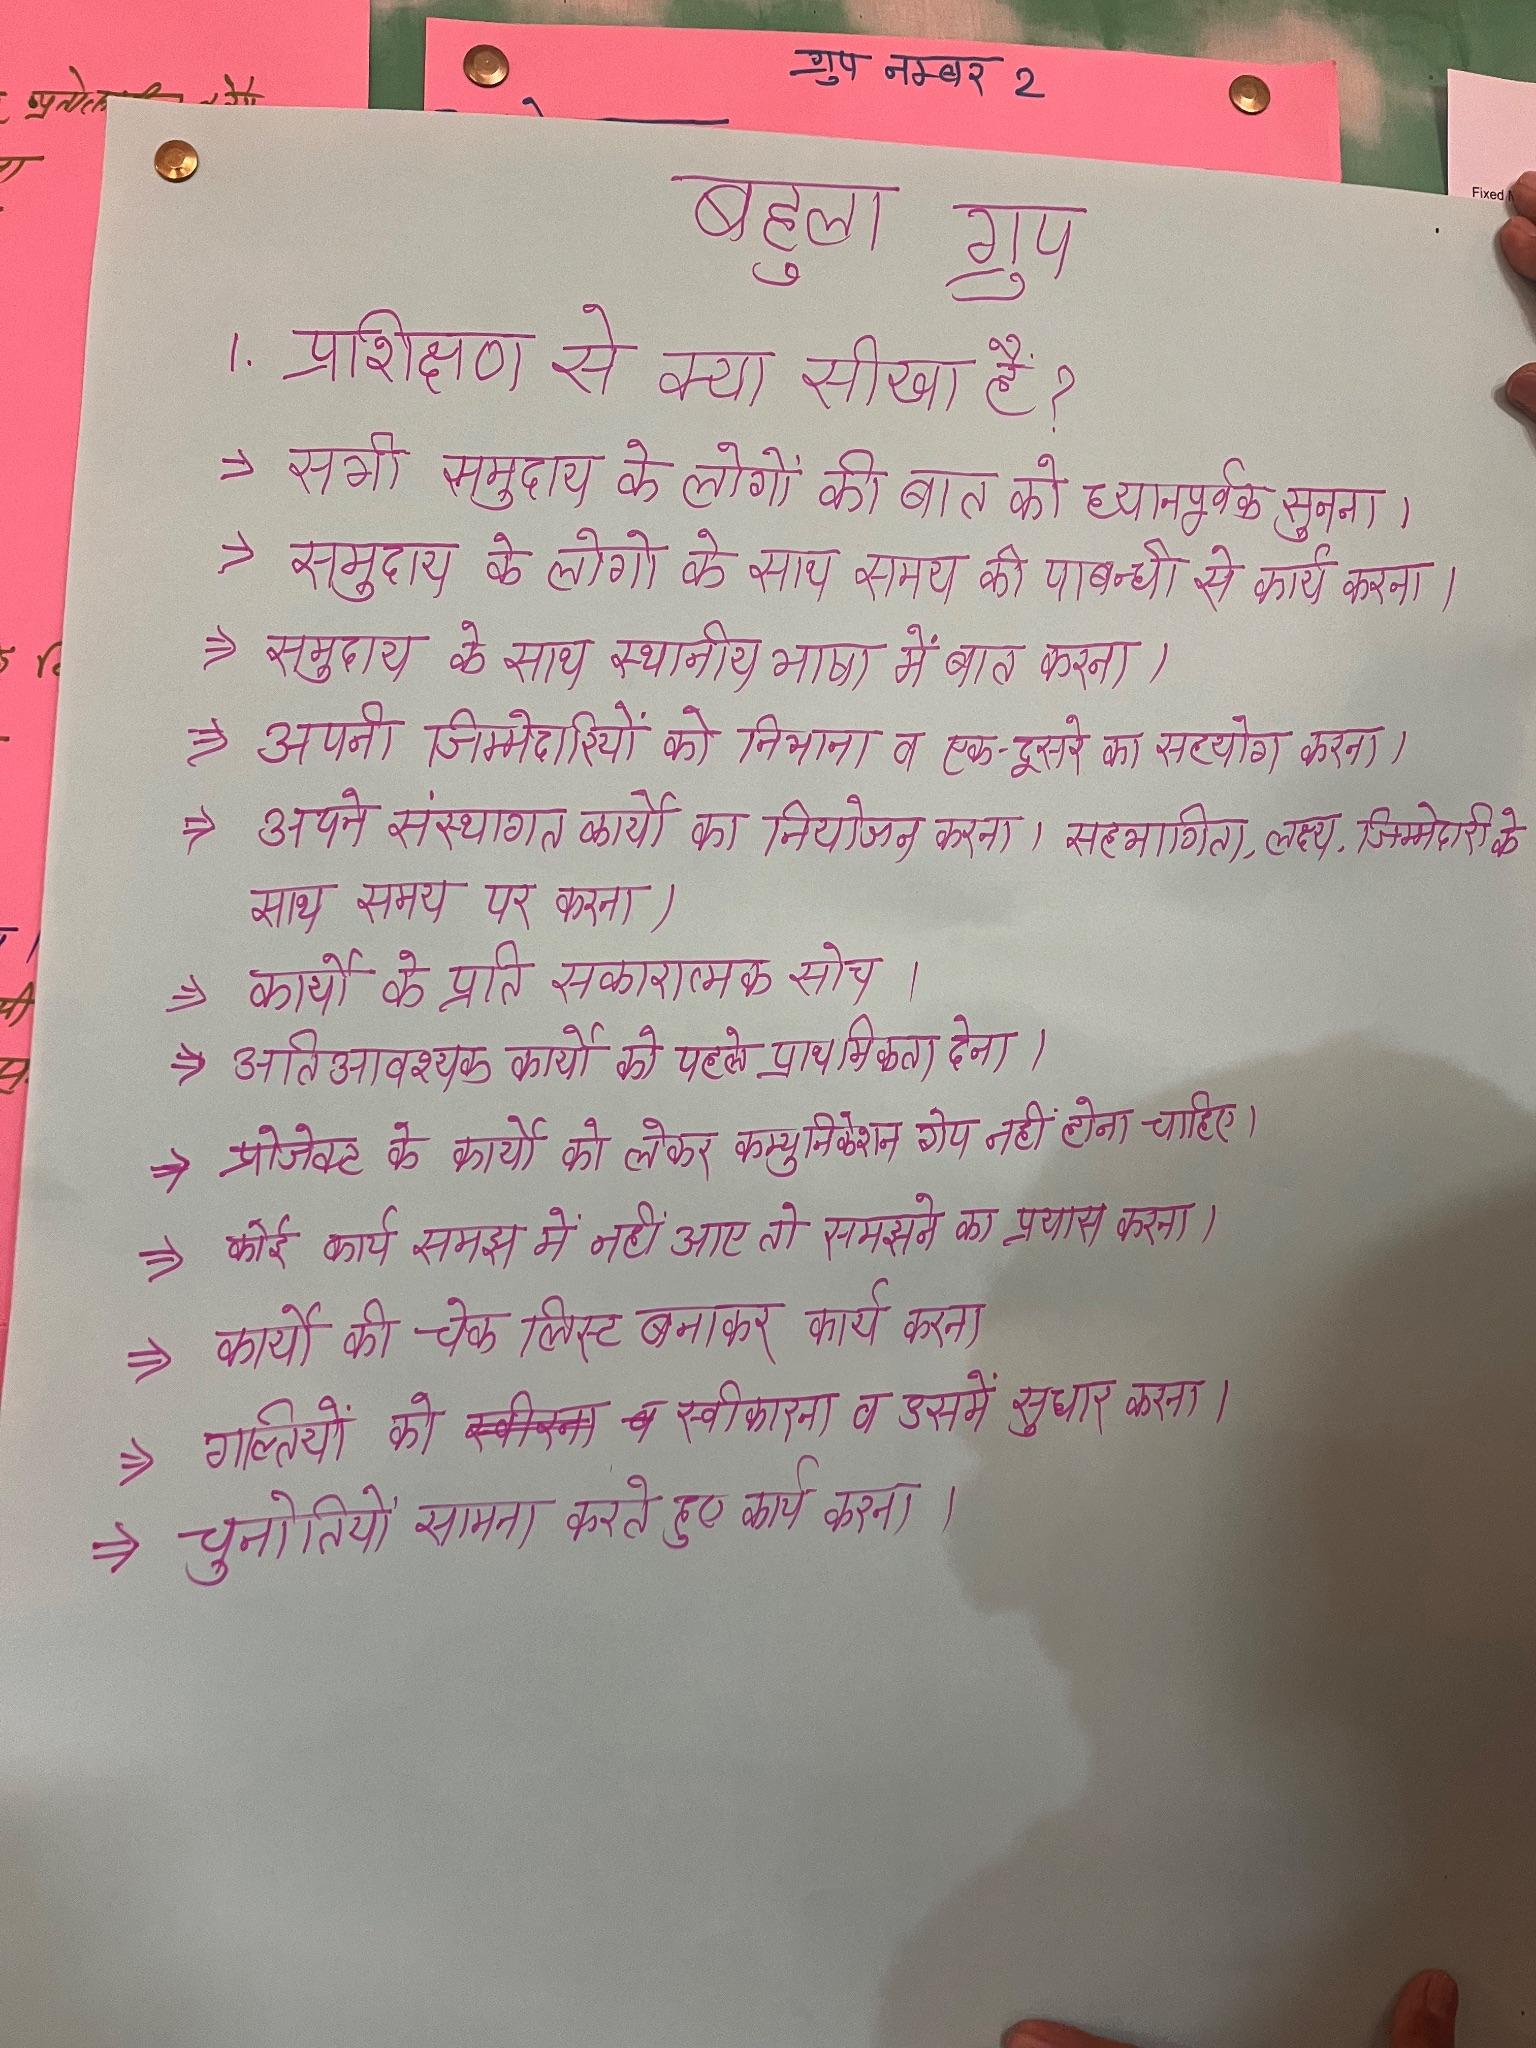 ग्रुप नम्बर 2
Fixed
बहुला ग्रुप
1. प्रशिक्षण से क्या सीखा हैं?
⇒ सभी समुदाय के लोगों की बात को ध्यानपूर्वक सुनना।
⇒ समुदाय के लोगो के साथ समय की पाबन्धी से कार्य करना।
⇒ समुदाय के साथ स्थानीय भाषा में बात करना।
⇒ अपनी जिम्मेदारियों को निभाना व एक-दूसरे का सहयोग करना।
⇒ अपने संस्थागत कार्यो का नियोजन करना। सहभागिता, लक्ष्य, जिम्मेदारी के
साथ समय पर करना।
⇒ कार्यो के प्रति सकारात्मक सोच।
⇒ अतिआवश्यक कार्यो को पहले प्राथमिकता देना।
⇒ प्रोजेक्ट के कार्यो को लेकर कम्युनिकेशन गेप नहीं होना चाहिए।
⇒ कोई कार्य समझ में नहीं आए तो समझने का प्रयास करना।
⇒ कार्यो की चेक लिस्ट बनाकर कार्य करना
⇒ गल्तियों को स्वीकारना व उसमें सुधार करना।
⇒ चुनोतियों सामना करते हुए कार्य करना।